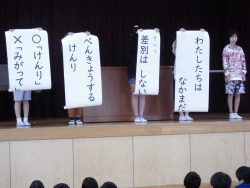 わたしたちは
なかまだ
差別は しない
べんきょうする
けんり
○「けんり」
×「みがって」